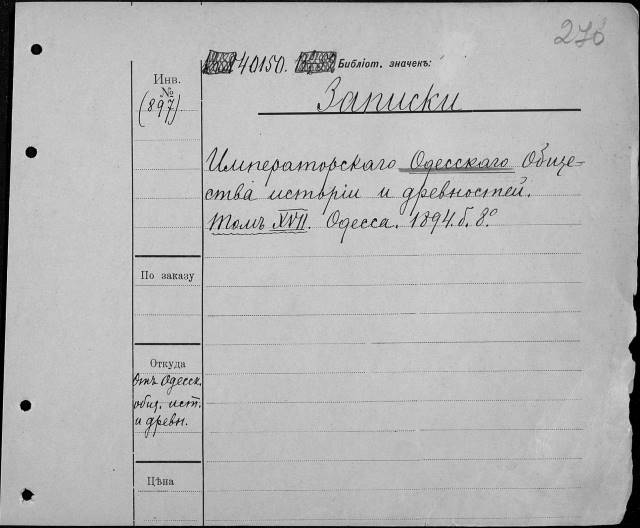 276
40150. Библіот. значекъ:
Инв.
№
(897)
Записки
Императорскаго Одесскаго Обще-
ства исторіи и древностей.
Томъ XVII. Одесса. 1894. б. 8°
По заказу
Откуда
Отъ Одесск.
общ. ист.
и древн.
Цѣна